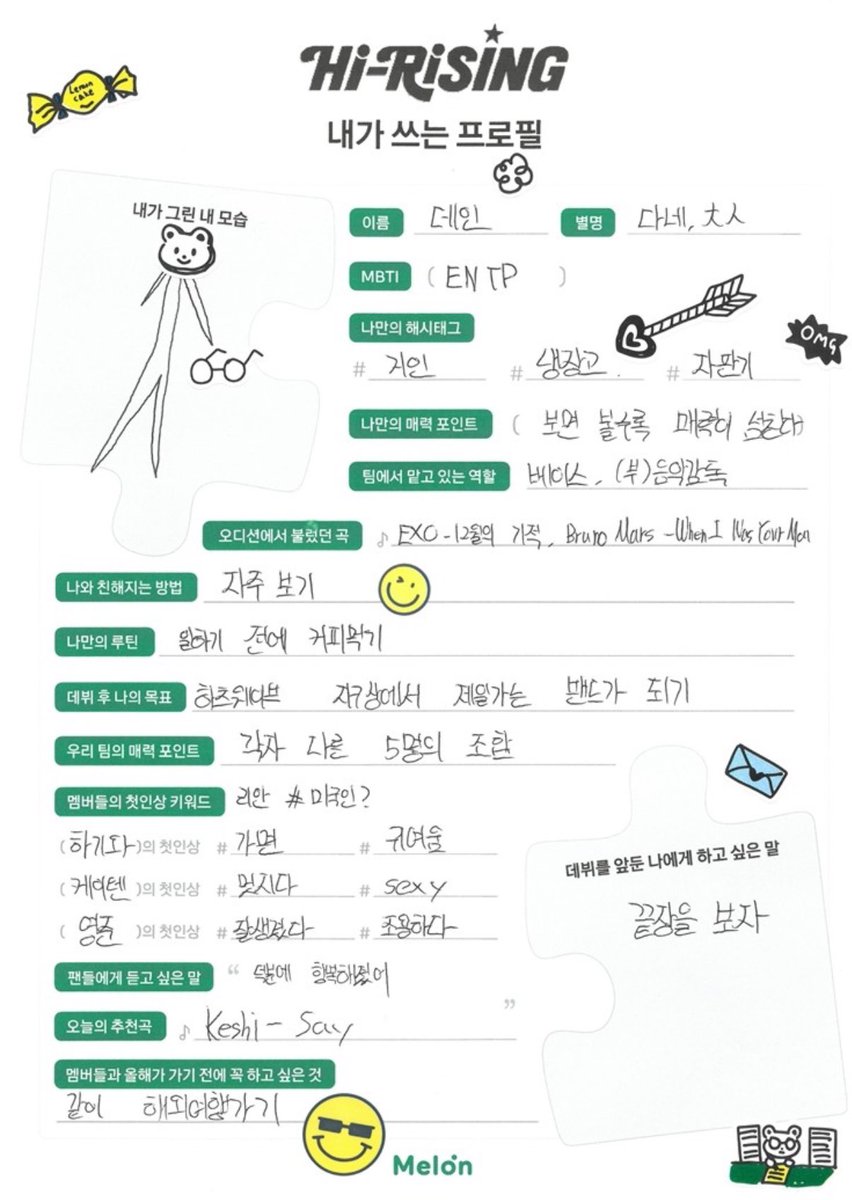 Lemon cake
Hi-RiSiNG
내가 쓰는 프로필
내가 그린 내 모습
이름 데인 별명 다네, ㅊㅅ
MBTI ( ENTP )
나만의 해시태그
OMG
# 거인 # 냉장고. # 자판기
나만의 매력 포인트 ( 보면 볼수록 매력이 넘친다)
팀에서 맡고 있는 역할 베이스, (부)음악감독
오디션에서 불렀던 곡 ♪ EXO - 12월의 기적, Bruno Mars - When I Was Your Man
나와 친해지는 방법 자주 보기
나만의 루틴 일하기 전에 커피먹기
데뷔 후 나의 목표 하츠웨이브 지구상에서 제일가는 밴드가 되기
우리 팀의 매력 포인트 각자 다른 5명의 조합
멤버들의 첫인상 키워드 리안 # 미국인?
( 하기와 )의 첫인상 # 가면 # 귀여움
( 케이텐 )의 첫인상 # 멋지다 # sexy
( 영준 )의 첫인상 # 잘생겼다 # 조용하다
데뷔를 앞둔 나에게 하고 싶은 말
끝장을 보자
팬들에게 듣고 싶은 말 “ 덕분에 행복해졌어 ”
오늘의 추천곡 ♪ Keshi - Say
멤버들과 올해가 가기 전에 꼭 하고 싶은 것
같이 해외여행가기
Melon